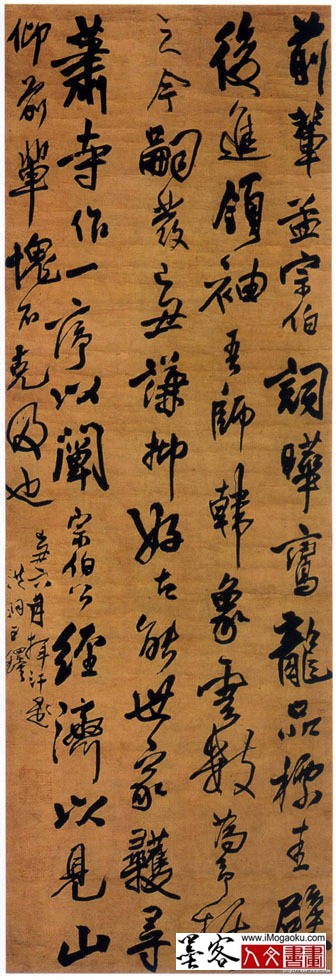 前輩孟宗伯詞曄鸞龍品標圭璧
後進領袖吾師韓象雲數為予
之今嗣發已丑謙抑好古能世家尋
蕭寺作一序以闡宗伯公經濟以見山
仰前輩愧不克及也
丑六月拜汗題
洪洞王鐸
墨客
www.iMogaoku.com
人文書畫